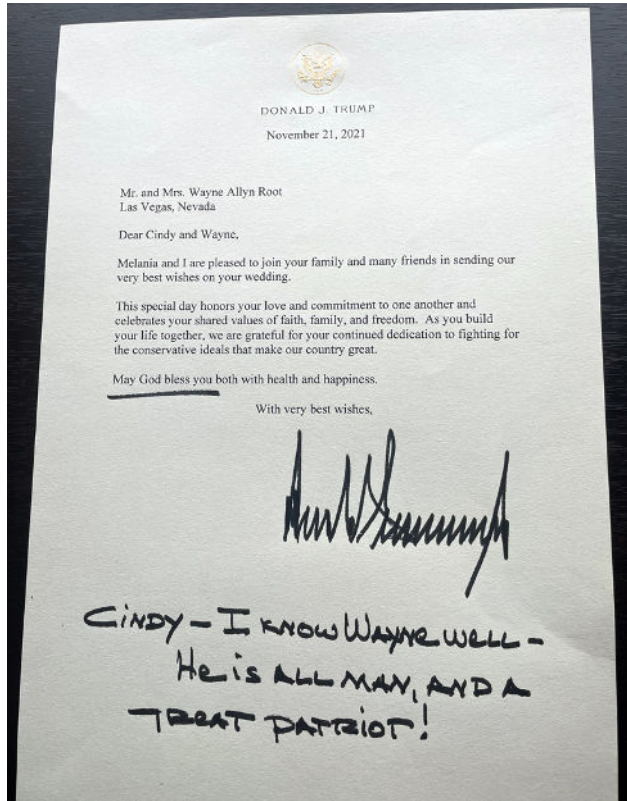 DONALD J. TRUMP
November 21, 2021
Mr. and Mrs. Wayne Allyn Root
Las Vegas, Nevada
Dear Cindy and Wayne,
Melania and I are pleased to join your family and many friends in sending our
very best wishes on your wedding.
This special day honors your love and commitment to one another and
celebrates your shared values of faith, family, and freedom. As you build
your life together, we are grateful for your continued dedication to fighting for
the conservative ideals that make our country great.
May God bless you both with health and happiness.
With very best wishes,
CINDY – I KNOW WAYNE WELL –
He is ALL MAN, AND A
GREAT PATRIOT!